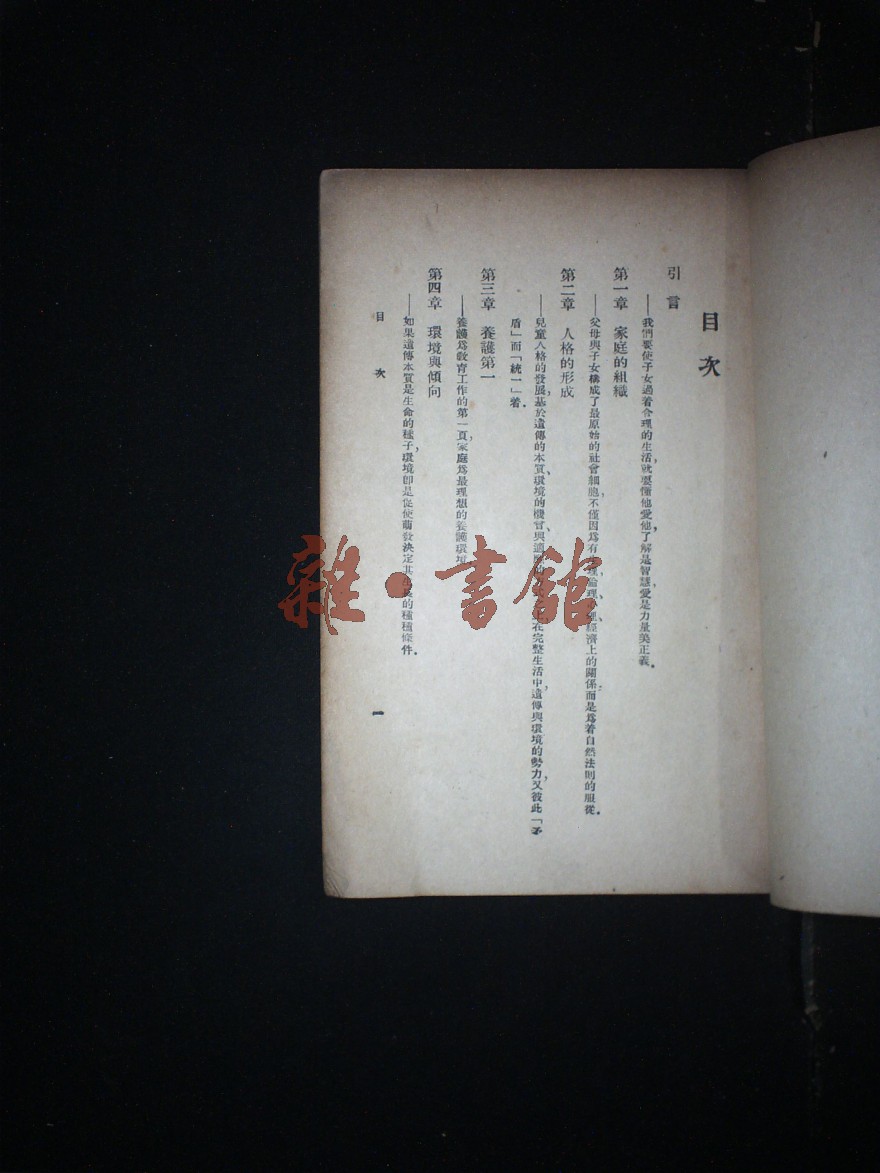 目次
引言
——我們要使子女過着合理的生活,就要懂他愛他了解是智慧,愛是力量美正義。
第一章 家庭的組織
——父母與子女構成了最原始的社會細胞不僅因爲有 理、倫理、心理、經濟上的關係,而是爲着自然法則的服從。
第二章 人格的形成
——兒童人格的發展,基於遺傳的本質、環境的機會、與適 在完整生活中,遺傳與環境的勢力,又彼此「矛
盾」而「統一」着。
第三章 養護第一
——養護爲教育工作的第一頁,家庭爲最理想的養護環境
第四章 環境與傾向
——如果遺傳本質是生命的種子,環境即是促使萌發決定其 的種種條件。
目次
一
雜·書館